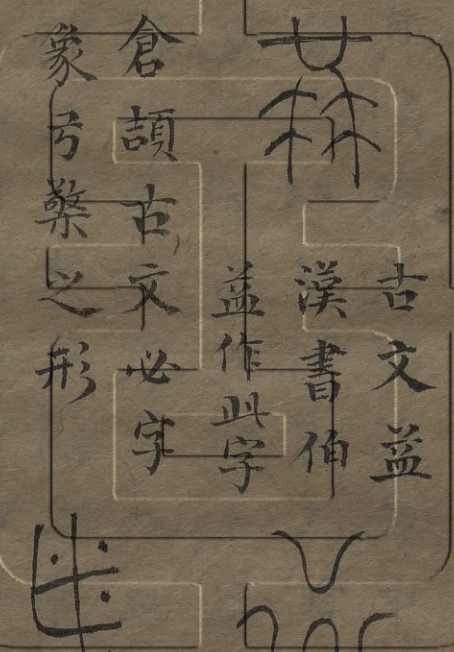 古文益
漢書伯
益作此字
倉頡古文必字
象弓檠之形